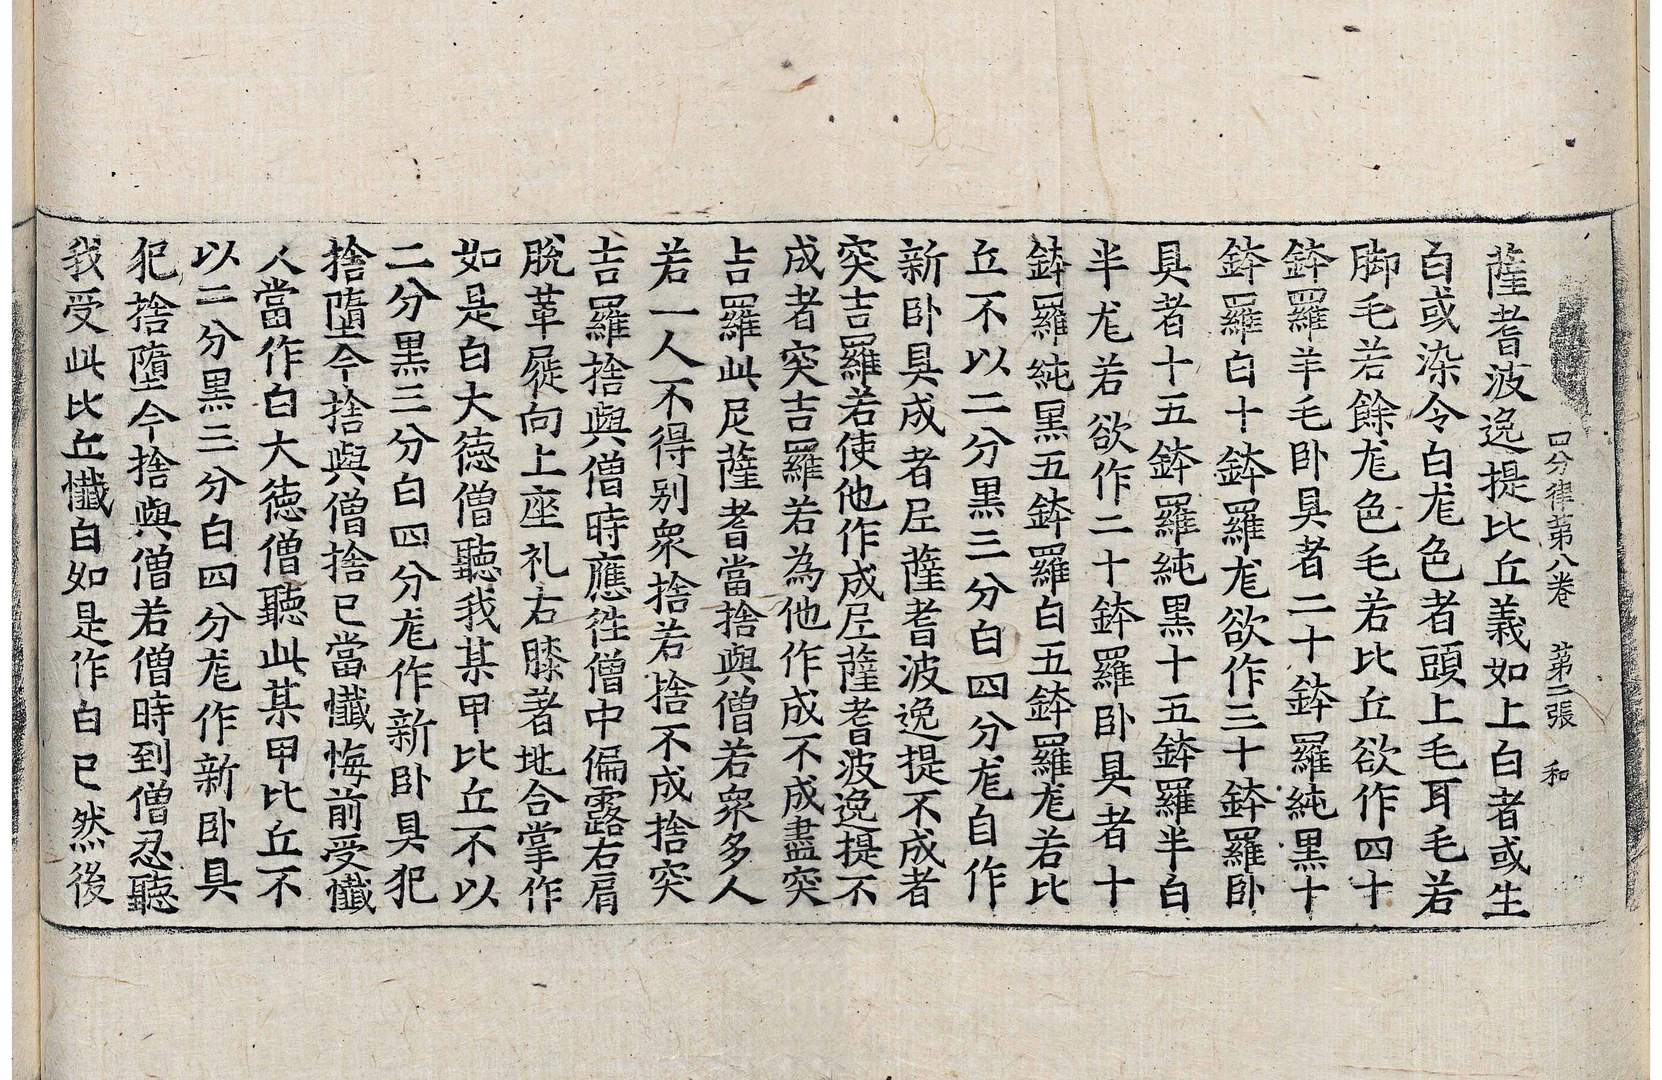 四分律第八卷 第二張 和
薩耆波逸提比丘義如上白者或生
白或染令白尨色者頭上毛耳毛若
脚毛若餘尨色毛若比丘欲作四十
鉢羅羊毛卧具者二十鉢羅純黒十
鉢羅白十鉢羅尨欲作三十鉢羅卧
具者十五鉢羅純黒十五鉢羅半白
半尨若欲作二十鉢羅卧具者十
鉢羅純黒五鉢羅白五鉢羅尨若比
丘不以二分黒三分白四分尨自作
新卧具成者尼薩耆波逸提不成者
突吉羅若使他作成尼薩耆波逸提不
成者突吉羅若為他作成不成盡突
吉羅此尼薩耆當捨與僧若眾多人
若一人不得别衆捨若捨不成捨突
吉羅捨與僧時應徃僧中偏露右肩
脫革屣向上座礼右膝著地合掌作
如是白大德僧聽我某甲比丘不以
二分黒三分白四分尨作新卧具犯
捨墮今捨與僧捨已當懺悔前受懺
人當作白大德僧聽此某甲比丘不
以二分黒三分白四分尨作新卧具
犯捨墮今捨與僧若僧時到僧忍聽
我受此比丘懺白如是作白已然後